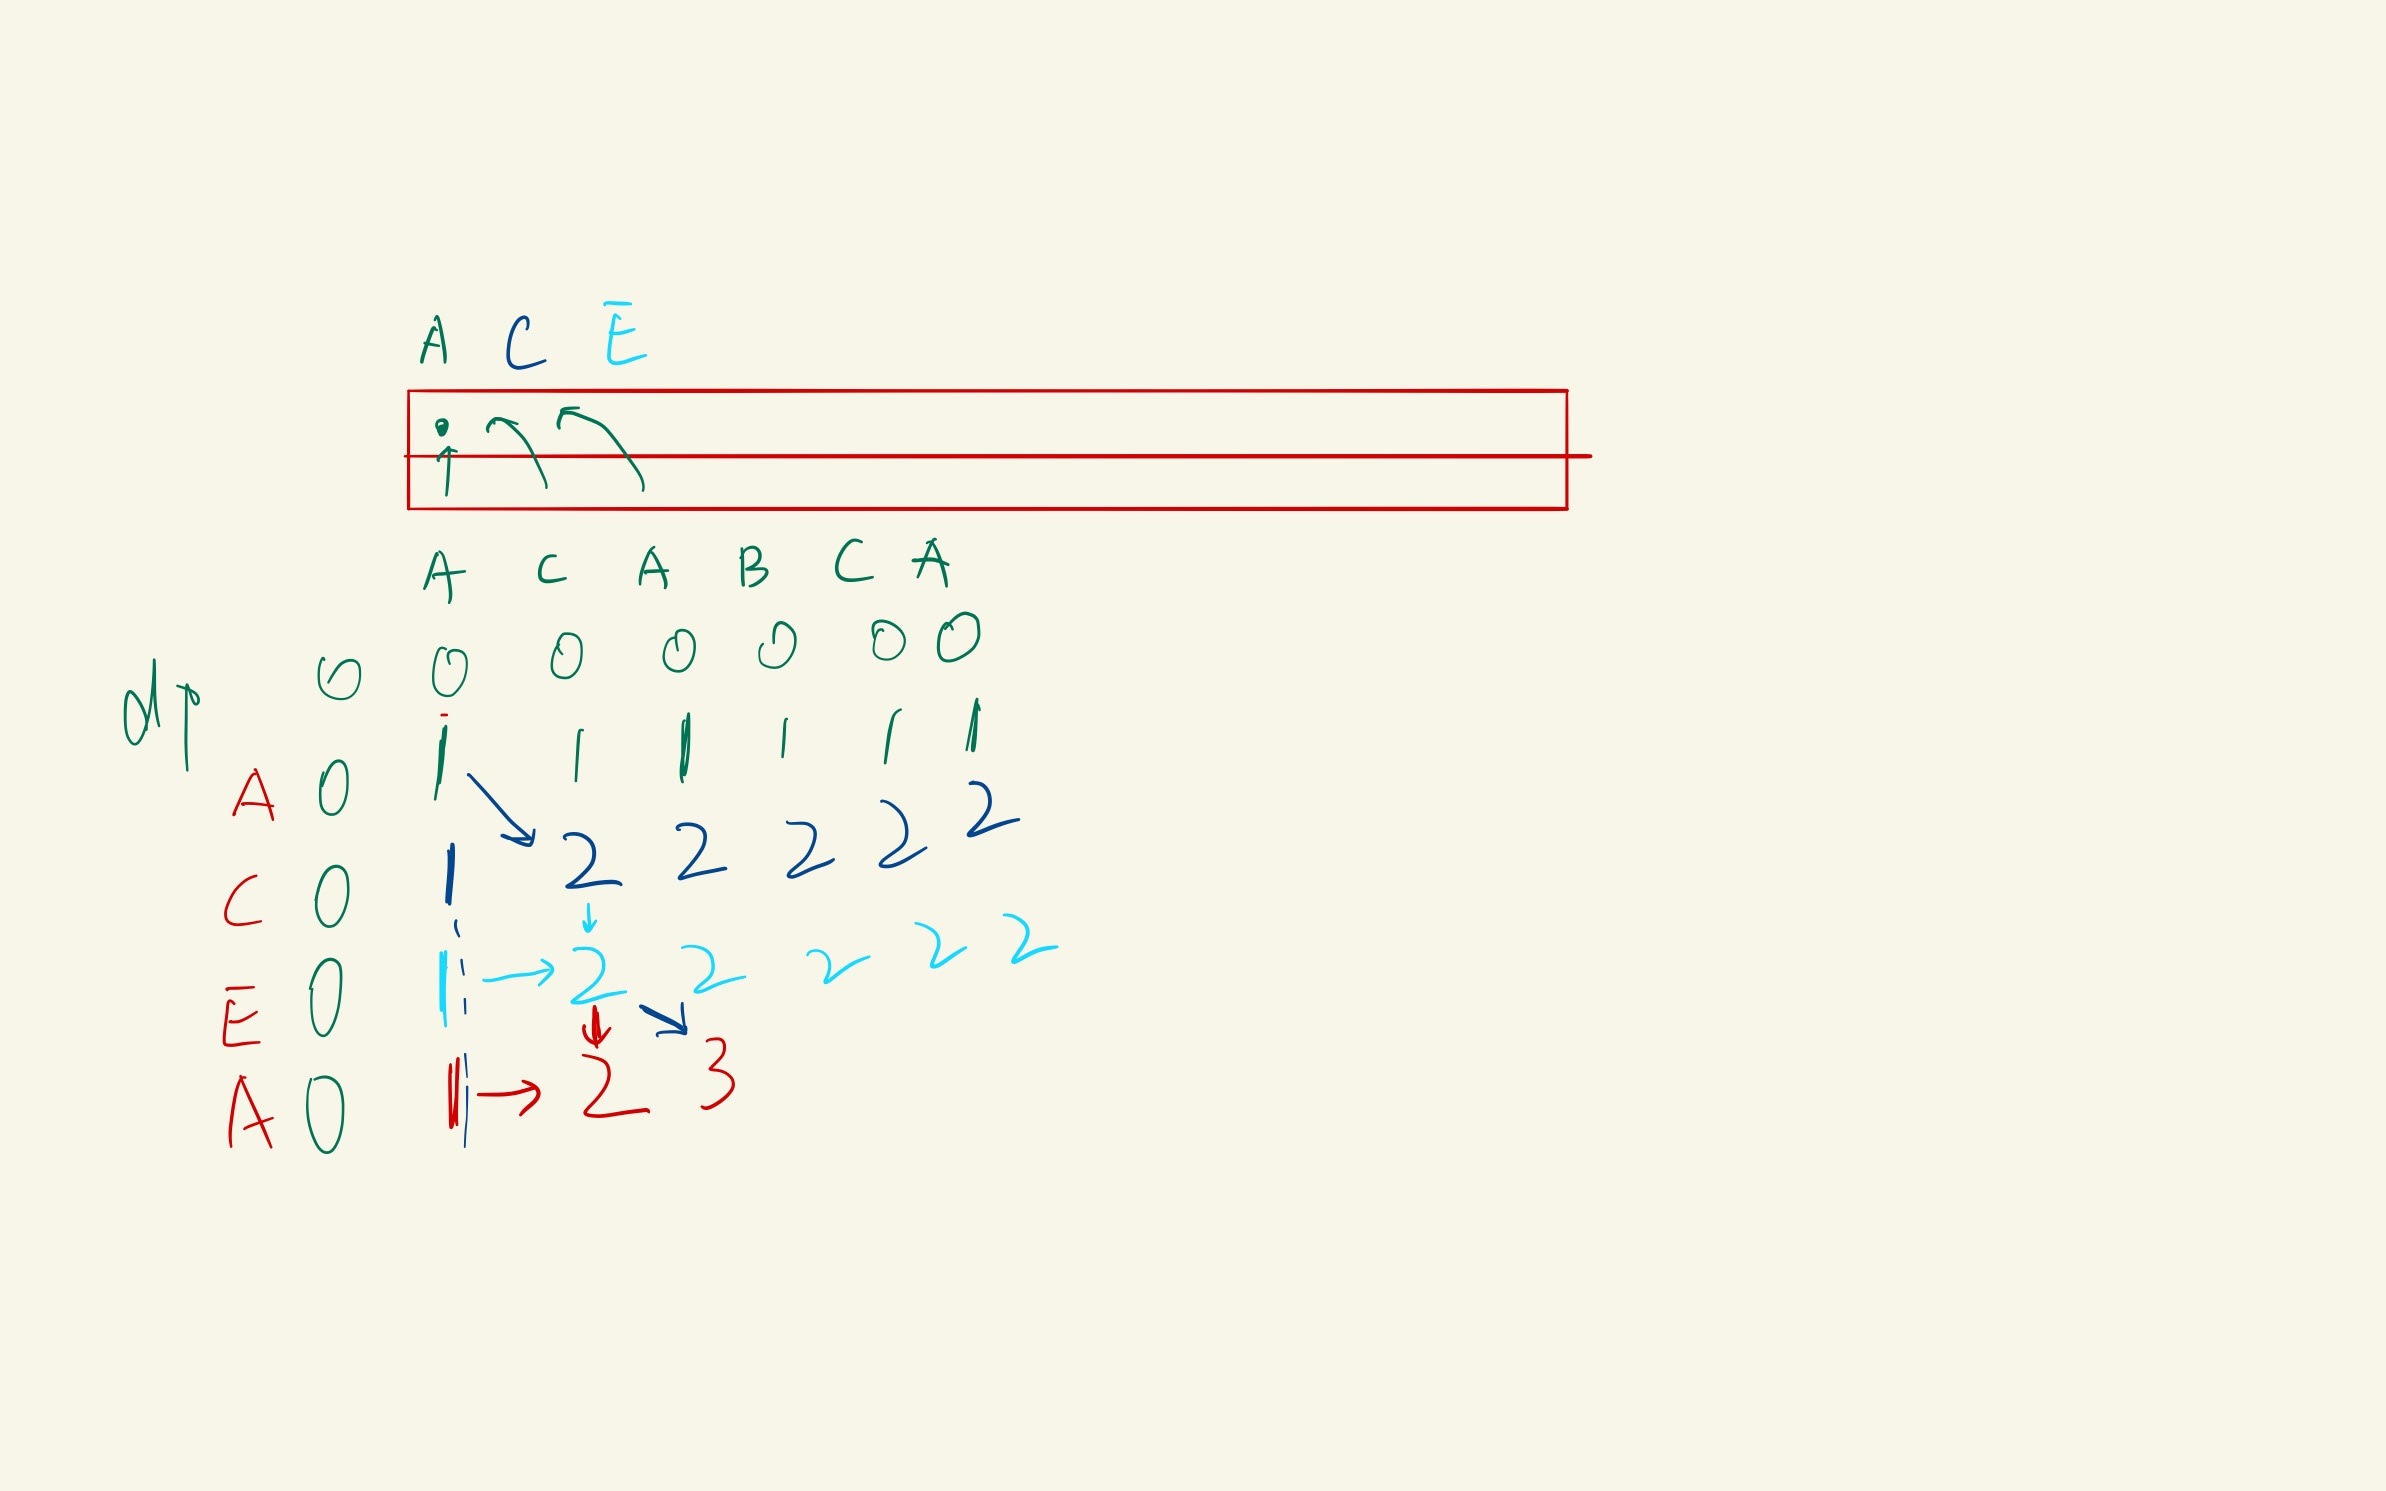 A C E
A C A B C A
dp 0 0 0 0 0 0 0
A 0 1 1 1 1 1 1
C 0 1 2 2 2 2 2
E 0 1 2 2 2 2 2
A 0 1 2 3